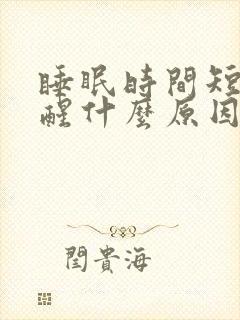 睡眠時間短
醒什麼原因
閆貴海